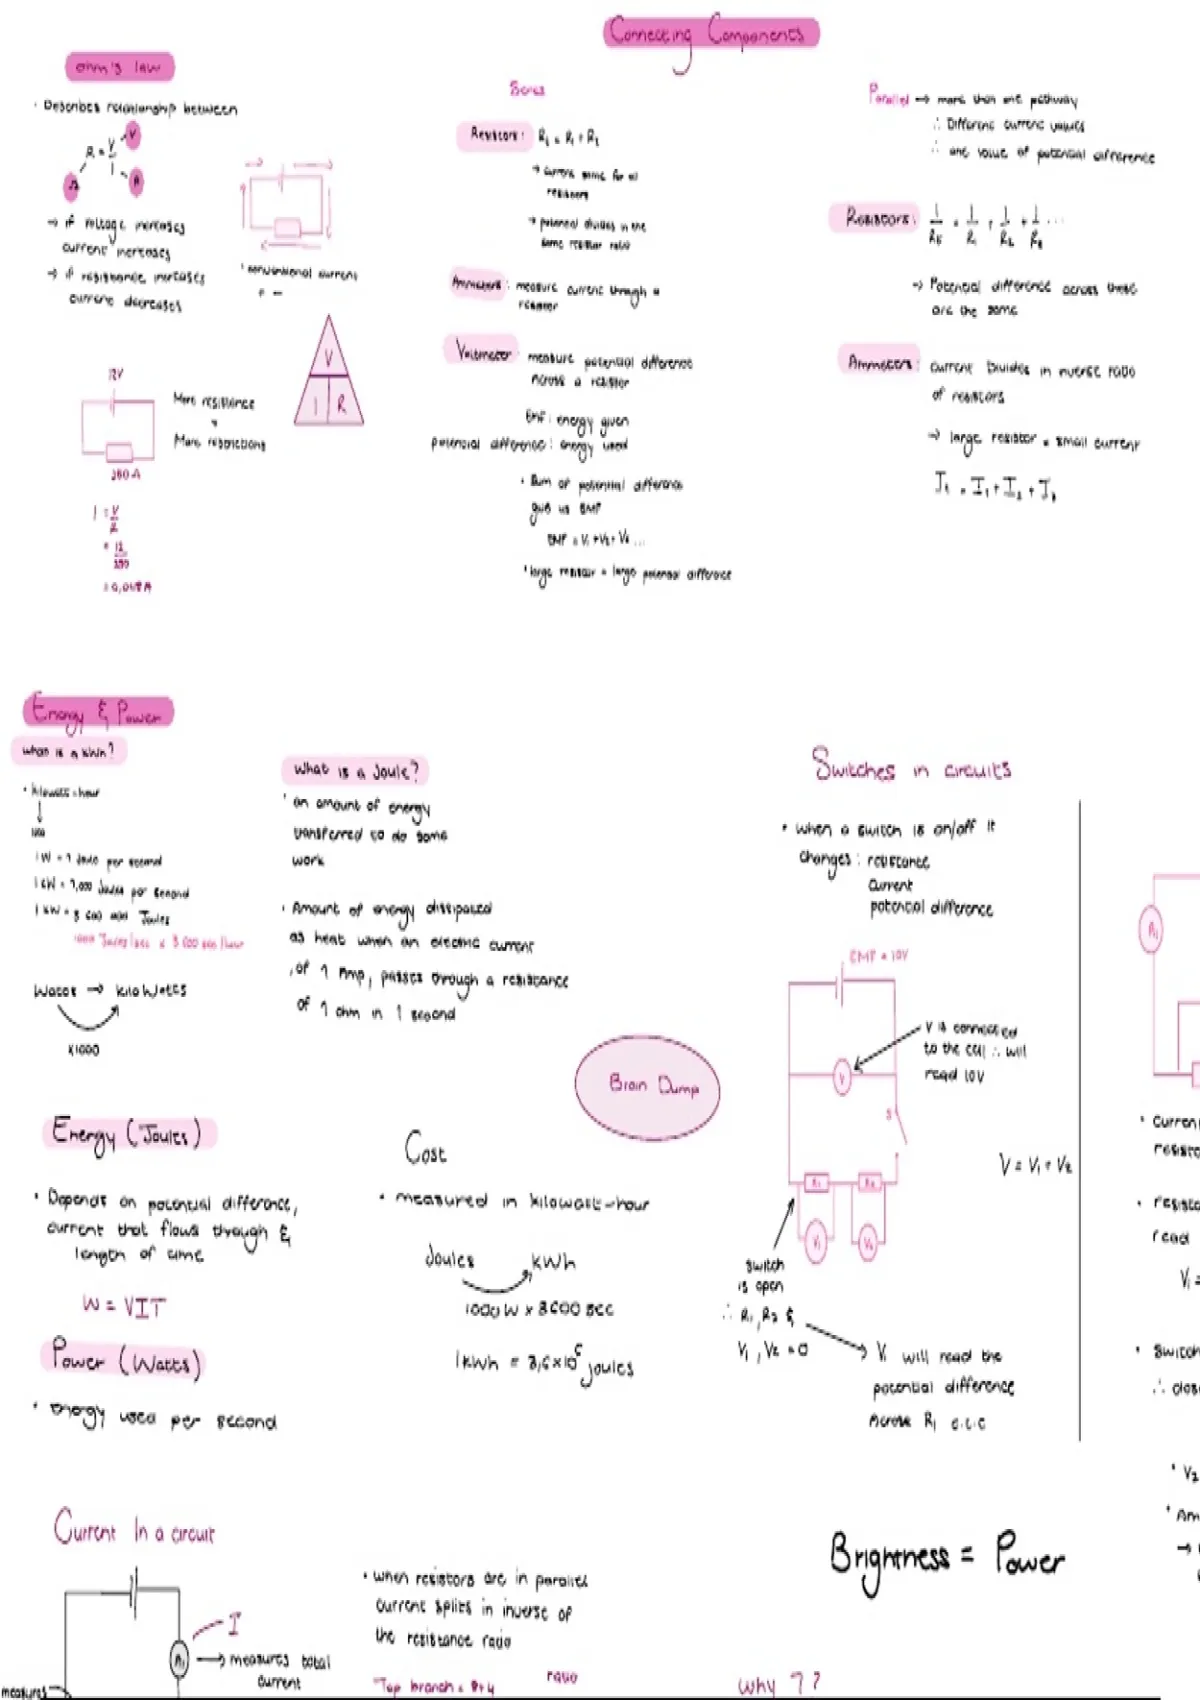 Connecting Components
ohm's law
• Describes relationship between
R = V/I
V
Ω
A
→ if voltage increases
current increases
→ if resistance increases
current decreases
• conventional current
+ −
V
I R
12V
More resistance
=
More restrictions
I = V/R
= 12
Series
Resistors: Rt = R1 + R2
→ current same for all
resistors
→ potential divides in the
same resistor ratio
Ammeters: measure current through a
resistor
Voltmeter: measure potential difference
across a resistor
EMF: energy given
potential difference: energy used
• Sum of potential difference
give us EMF
EMF = V1 + V2 + V3 ...
• large resistor = large potential difference
Parallel → more than one pathway
∴ Different current values
∴ one value of potential difference
Resistors: 1/Rt = 1/R1 + 1/R2 + 1/R3 ...
→ Potential difference across these
are the same
Ammeters: current Divides in inverse ratio
of resistors
→ large resistor = small current
It = I1 + I2 + I3
Energy & Power
what is a kWh?
• kilowatt-hour
1000
1W = 1 Joule per second
1kW = 1,000 Joules per second
Watts → kiloWatts
x1000
What is a Joule?
• an amount of energy
transferred to do some
work
• Amount of energy dissipated
as heat when an electric current
, of 1 Amp, passes through a resistance
of 1 ohm in 1 second
Brain Dump
Energy (Joules)
• Depends on potential difference,
current that flows through &
length of time
W = VIT
Power (Watts)
• energy used per second
Cost
• measured in kilowatt-hour
Joules kWh
1000W x 3600 sec
1kWh = 3,6x10⁶ joules
Switches in circuits
• when a switch is on/off it
changes: resistance
current
potential difference
EMF = 10V
V is connected
to the cell ∴ will
read 10V
V
S
R1 R2
V1 V2
V = V1 + V2
switch
is open
∴ R1, R2 &
V1, V2 = 0
V1 will read the
potential difference
Across R1 e.t.c
A1
• Curren
resisto
• resisto
read
V1 =
• Switch
∴ clos
• V2
• Am
→
Current In a circuit
I
A1 → measures total
current
measures
• when resistors are in parallel
current splits in inverse of
the resistance ratio
ratio
Top branch = 8+4
why ??
Brightness = Power